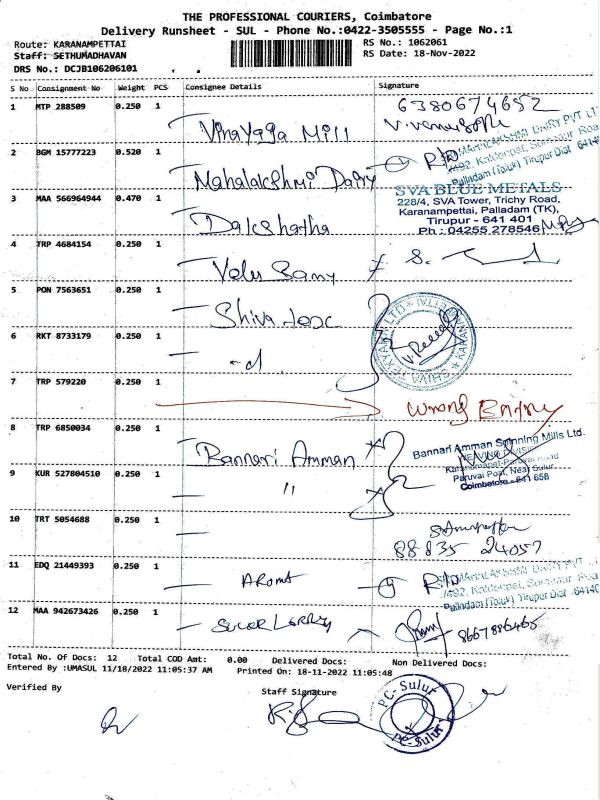 THE PROFESSIONAL COURIERS, Coimbatore
Delivery Runsheet - SUL - Phone No.:0422-3505555 - Page No.:1
Route: KARANAMPETTAI RS No.: 1062061
Staff: SETHUMADHAVAN RS Date: 18-Nov-2022
DRS No.: DCJB106206101
S No Consignment No Weight PCS Consignee Details Signature
1 MTP 288509 0.250 1 6380674652
Vinayaga Mill
2 BGM 15777223 0.520 1 MAHALAKSHMI DAIRY PVT LT
Mahalakshmi Dairy Palladam (Taluk) Tirupur Dist
3 MAA 566964944 0.470 1 SVA BLUE METALS
228/4, SVA Tower, Trichy Road,
Karanampettai, Palladam (TK),
Dakshatha Tirupur - 641 401
Ph : 04255 278546
4 TRP 4684154 0.250 1
Velu Samy
5 PON 7563651 0.250 1
Shiva tex
6 RKT 8733179 0.250 1
-d
7 TRP 579220 0.250 1
Wrong Entry
8 TRP 6850034 0.250 1 Bannari Amman Spinning Mills Ltd.
Bannari Amman WEAVING DIVISION
9 KUR 527804510 0.250 1 Paruvai Post, Near Sulur
" Coimbatore - 641 658
10 TRT 5054688 0.250 1
88835 24057
11 EDQ 21449393 0.250 1
Palladam (Taluk) Tirupur Dist
12 MAA 942673426 0.250 1
8667886465
Total No. Of Docs: 12 Total COD Amt: 0.00 Delivered Docs: Non Delivered Docs:
Entered By :UMASUL 11/18/2022 11:05:37 AM Printed On: 18-11-2022 11:05:48
Verified By Staff Signature PC-Sulur
PC-Sulur